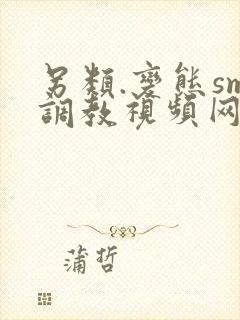 另類.變態sm
調教視頻网
蒲哲